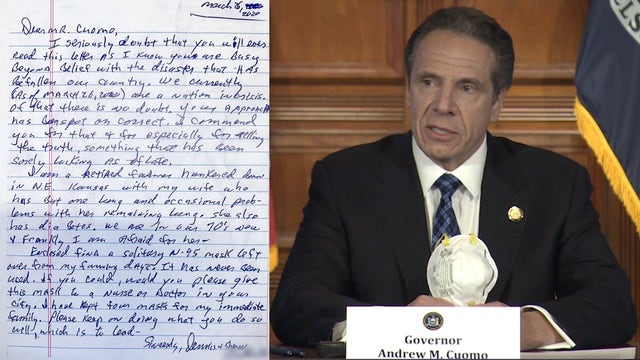 March 26, 2020
Dear MR. Cuomo,
I seriously doubt that you will ever
read this letter as I know you are busy
beyond belief with the disaster that has
befallen our country. We currently
(as of MARCH 26, 2020) are a nation in crisis.
Of that there is no doubt. Your approach
has been spot on correct. I commend
you for that & for especially for telling
the truth, something that has been
sorely lacking as of late.
I am a retired farmer hunkered down
in N.E. Kansas with my wife who
has but one lung and occasional prob-
lems with her remaining lung. She also
has diabetes. We are in our 70's now
& frankly, I am afraid for her.
Enclosed find a solitary N-95 mask left
over from my farming days. It has never been
used. If you could, would you please give
this mask to a nurse or doctor in your
city. I have kept four masks for my immediate
family. Please keep on doing what you do so
well, which is to lead-
Sincerely, Dennis & Sharon
Governor
Andrew M. Cuomo